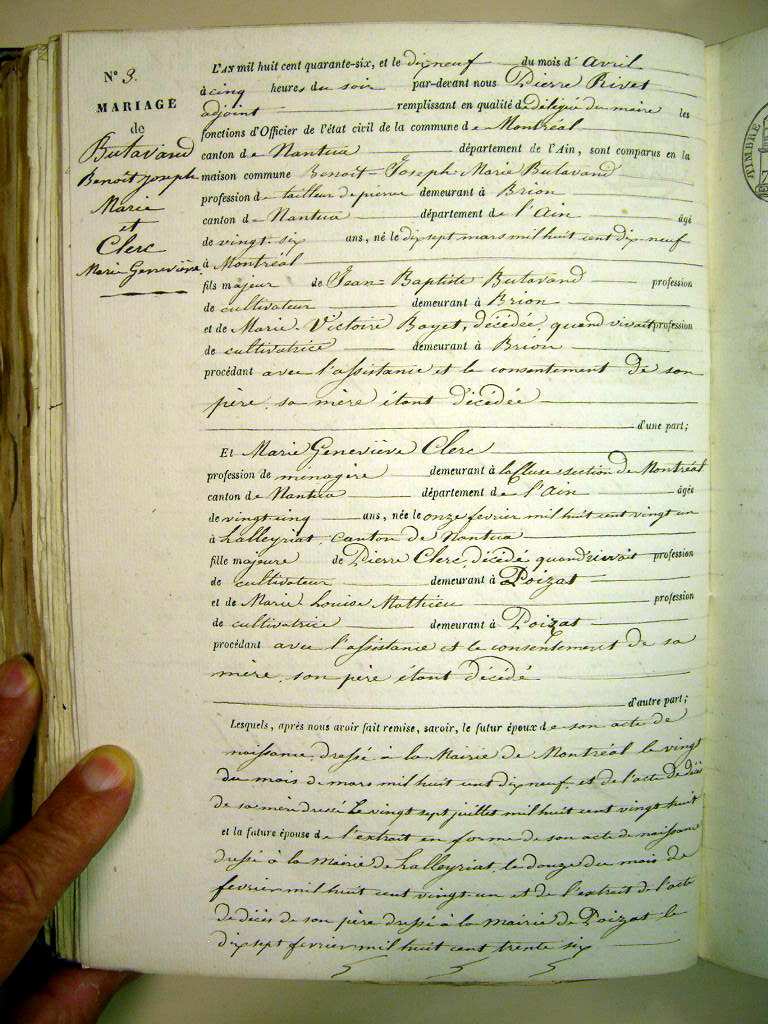 N° 3.
MARIAGE
de
Butavand
Benoit Joseph
Marie
et
Clerc
Marie Geneviève
L'AN mil huit cent quarante-six, et le dix neuf du mois d'Avril
à cinq heures du soir par-devant nous Pierre Rivet
adjoint remplissant en qualité de délégué du maire les
fonctions d'Officier de l'état civil de la commune de Montréal
canton de Nantua département de l'Ain, sont comparus en la
maison commune Benoit-Joseph-Marie Butavand
profession de tailleur de pierre demeurant à Brion
canton de Nantua département de l'Ain âgé
de vingt-six ans, né le dix sept mars mil huit cent dix neuf
à Montréal
fils majeur de Jean-Baptiste Butavand profession
de cultivateur demeurant à Brion
et de Marie-Victoire Bayet, décédée, quand vivait profession
de cultivatrice demeurant à Brion
procédant avec l'assistance et le consentement de son
père, sa mère étant décédée
d'une part;
Et Marie Geneviève Clerc
profession de ménagère demeurant à la Cluse section de Montréal
canton de Nantua département de l'Ain âgée
de vingt cinq ans, née le onze fevrier mil huit cent vingt un
à Lalleyriat, canton de Nantua
fille majeure de Pierre Clerc, décédé quand vivait profession
de cultivateur demeurant à Poizat
et de Marie-Louise Mathieu profession
de cultivatrice demeurant à Poizat
procédant avec l'assistance et le consentement de sa
mère, son père étant décédé
d'autre part;
Lesquels, après nous avoir fait remise, savoir, le futur époux de son acte de
naissance, dressé à la Mairie de Montréal le vingt
du mois de mars mil huit cent dix neuf, et de l'acte de décès
de sa mère dressé le vingt sept juillet mil huit cent vingt huit
et la future épouse de l'extrait en forme de son acte de naissance
dressé à la Mairie de Lalleyriat, le douze du mois de
fevrier mil huit cent vingt un et de l'extrait de l'acte
de décès de son père dressé à la Mairie de Poizat le
dix sept fevrier mil huit cent trente six
TIMBRE